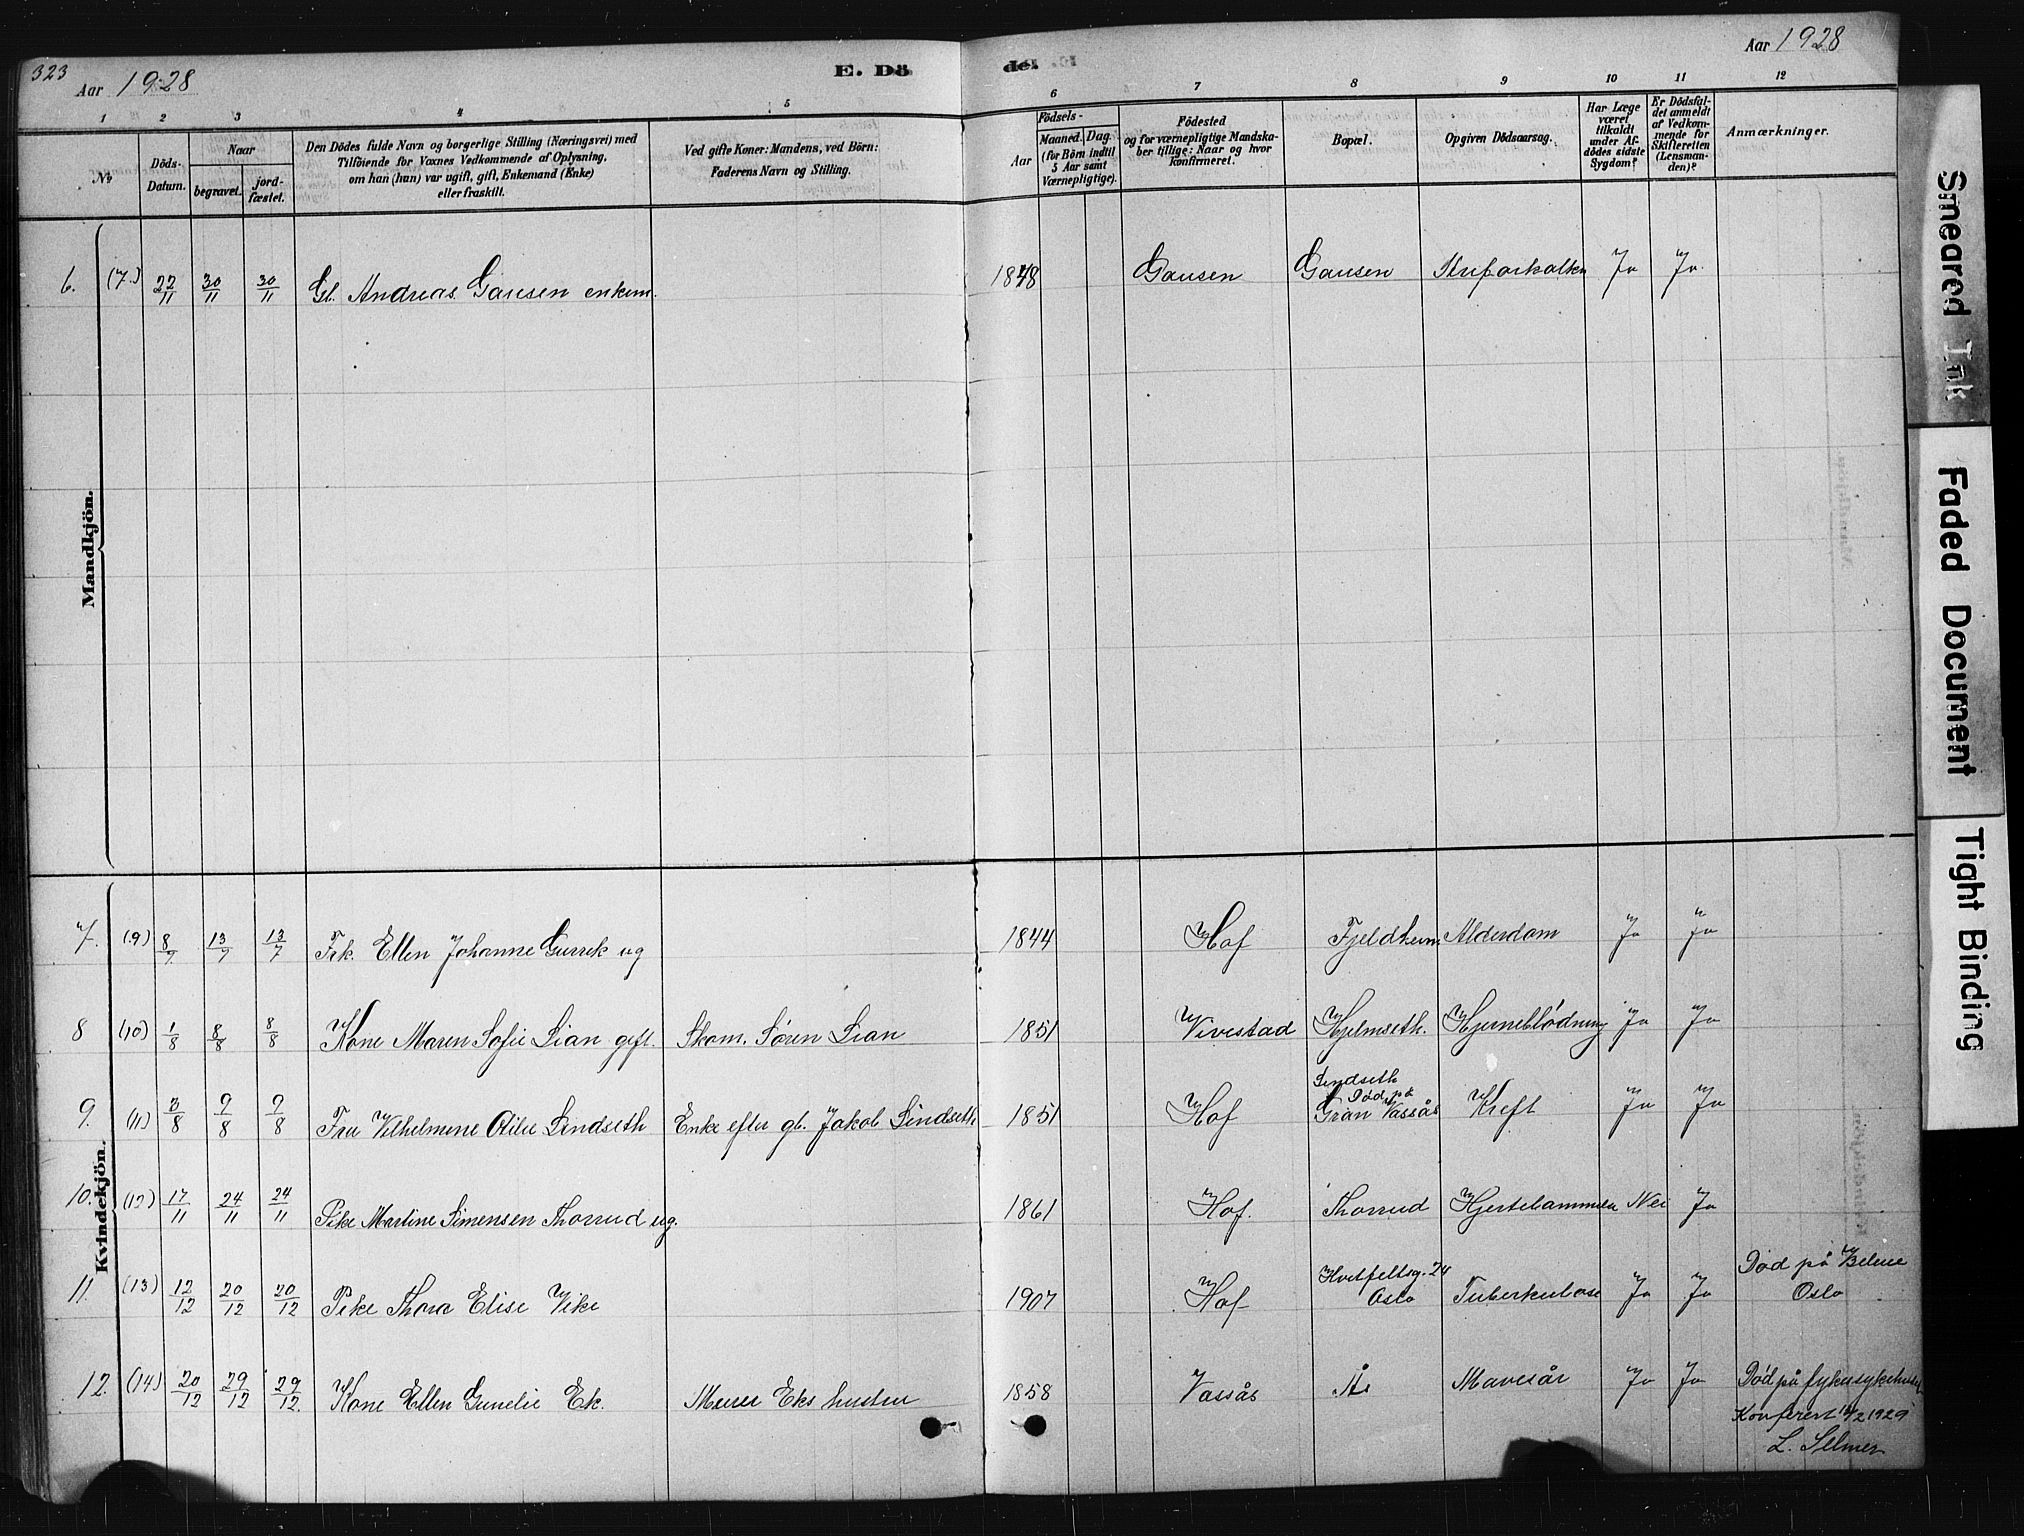 323
Aar 1928
E. Dö
de.
Aar 1928
1 2 3 4 5 6 7 8 9 10 11 12
No
Döds-
Datum.
Naar
begravet.
jord-
fæstet.
Den Dödes fulde Navn og borgerlige Stilling (Næringsvei) med
Tilföiende for Voxnes Vedkommende af Oplysning,
om han (hun) var ugift, gift, Enkemand (Enke)
eller fraskilt.
Ved gifte Koner: Mandens, ved Börn:
Faderens Navn og Stilling.
Födsels-
Aar
Maaned. Dag.
(for Börn indtil
5 Aar samt
Værnepligtige).
Födested
og for værnepligtige Mandska-
ber tillige: Naar og hvor
konfirmeret.
Bopæl.
Opgiven Dödsaarsag.
Har Læge
været
tilkaldt
under Af-
dödes sidste
Sygdom?
Er Dödsfal-
det anmeldt
af Vedkom-
mende for
Skifteretten
(Lensman-
den)?
Anmærkninger.
Mandkjön.
6. (7.) 22/11 30/11 30/11 Gl. Andreas Gausen enkem. 1848 Gausen Gausen Struforkalkn Ja Ja
Kvindekjön.
7. (9) 8/7 13/7 13/7 Frk. Ellen Johanne Gurrik ug 1844 Hof Fjeldheim Alderdom Ja Ja
8 (10) 1/8 8/8 8/8 Kone Maren Sofie Lian gift. Skom. Søren Lian 1851 Vivestad Hjelmseth. Hjerneblødning Ja Ja
9. (11) 3/8 9/8 9/8 Fru Vilhelmine Otilie Lindseth Enke efter gl. Jakob Lindseth 1851 Hof Lindseth
Død på
Gran Vassås Kreft Ja Ja
10. (12) 17/11 24/11 24/11 Pike Martine Simensen Thorrud ug. 1861 Hof. Thorrud Hjertelammelse Nei Ja
11 (13) 12/12 20/12 20/12 Pike Thora Elise Vike 1907 Hof Hvitfeltsg. 24
Oslo Tuberkulose Ja Ja Død på
Oslo
12. (14) 20/12 29/12 29/12. Kone Ellen Gunelie Ek. Murer Eks hustru 1858 Vassås Ås Mavesår Ja Ja Død på fylkesykehuset
Konferert 12/2 1929
L. Selmer
Smeared Ink
Faded Document
Tight Binding